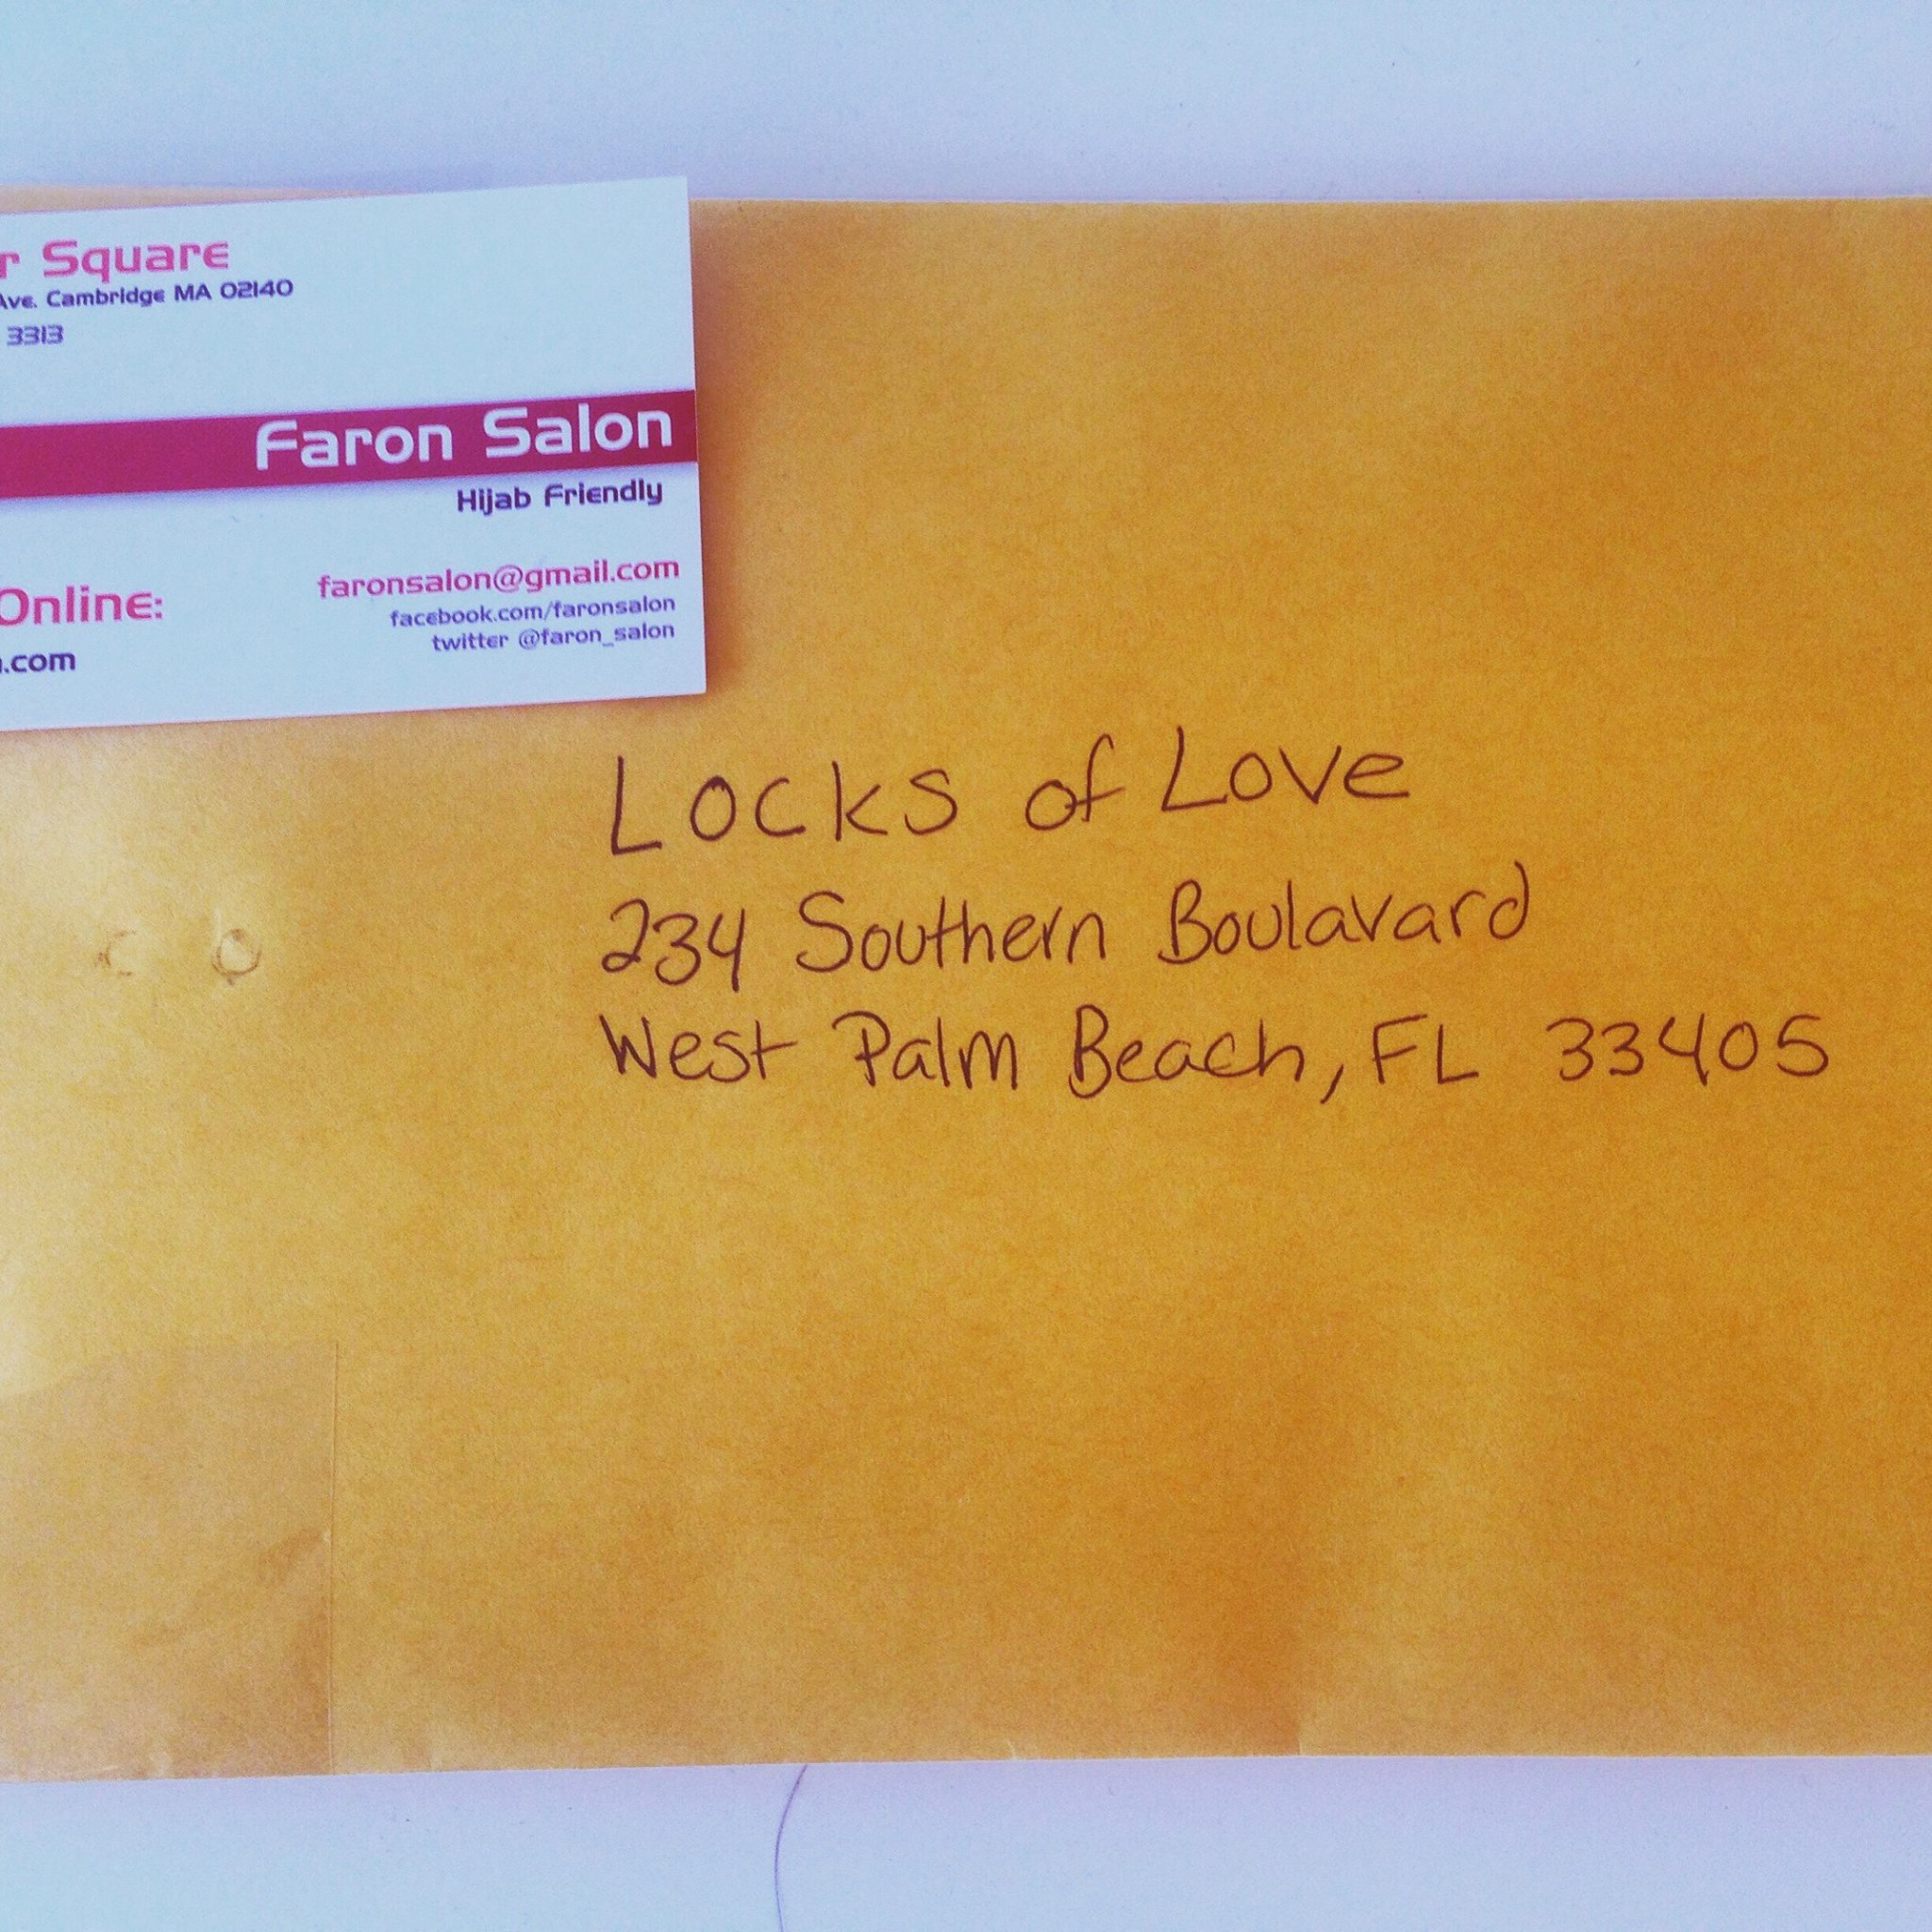 Square
Ave. Cambridge MA 02140
3313
Faron Salon
Hijab Friendly
Online:
.com
faronsalon@gmail.com
facebook.com/faronsalon
twitter @faron_salon
Locks of Love
234 Southern Boulavard
West Palm Beach, FL 33405